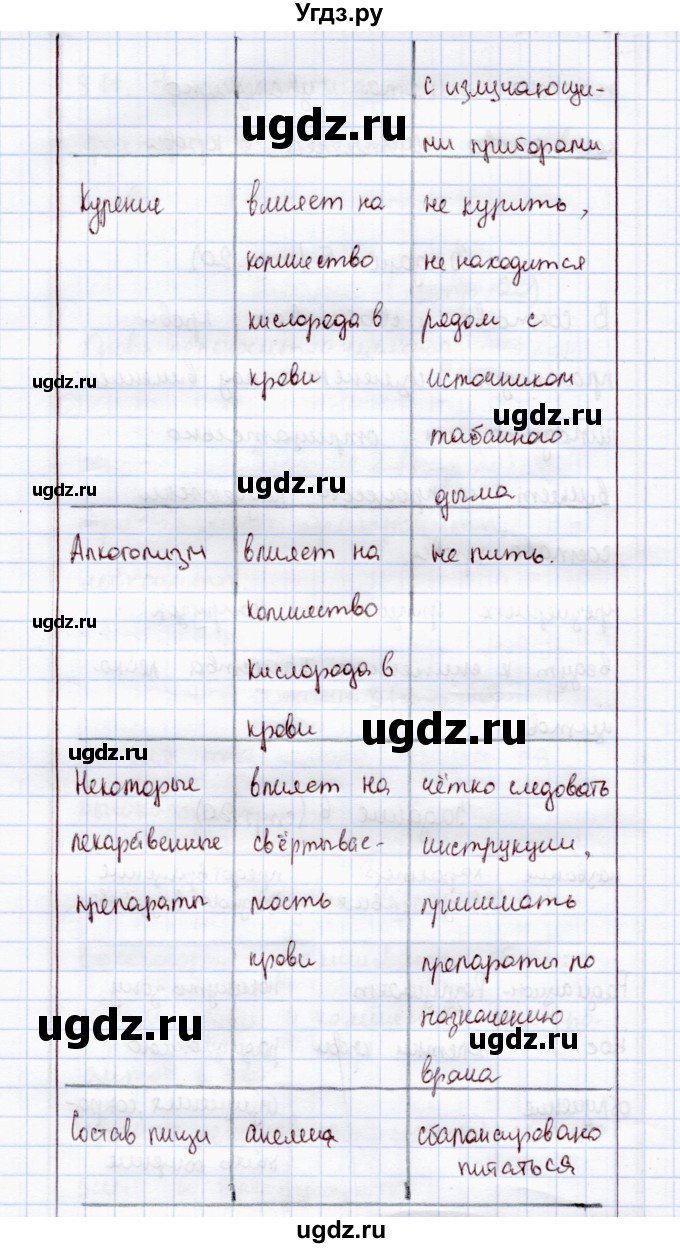 Угдз.ру
с излучающи-
ми приборами
ugdz.ru
Курение влияет на не курить,
количество не находится
кислорода в рядом с
ugdz.ru крови источником
ugdz.ru
табачного
ugdz.ru ugdz.ru дыма
Алкоголизм влияет на не пить.
количество
ugdz.ru
кислорода в
крови ugdz.ru
ugdz.ru
Некоторые влияет на чётко следовать
лекарственные свёртывае- инструкции,
препараты мость принимать
крови препараты по
ugdz.ru назначению ugdz.ru
врача
Состав пищи анемия сбалансировано
питаться
ugdz.ru